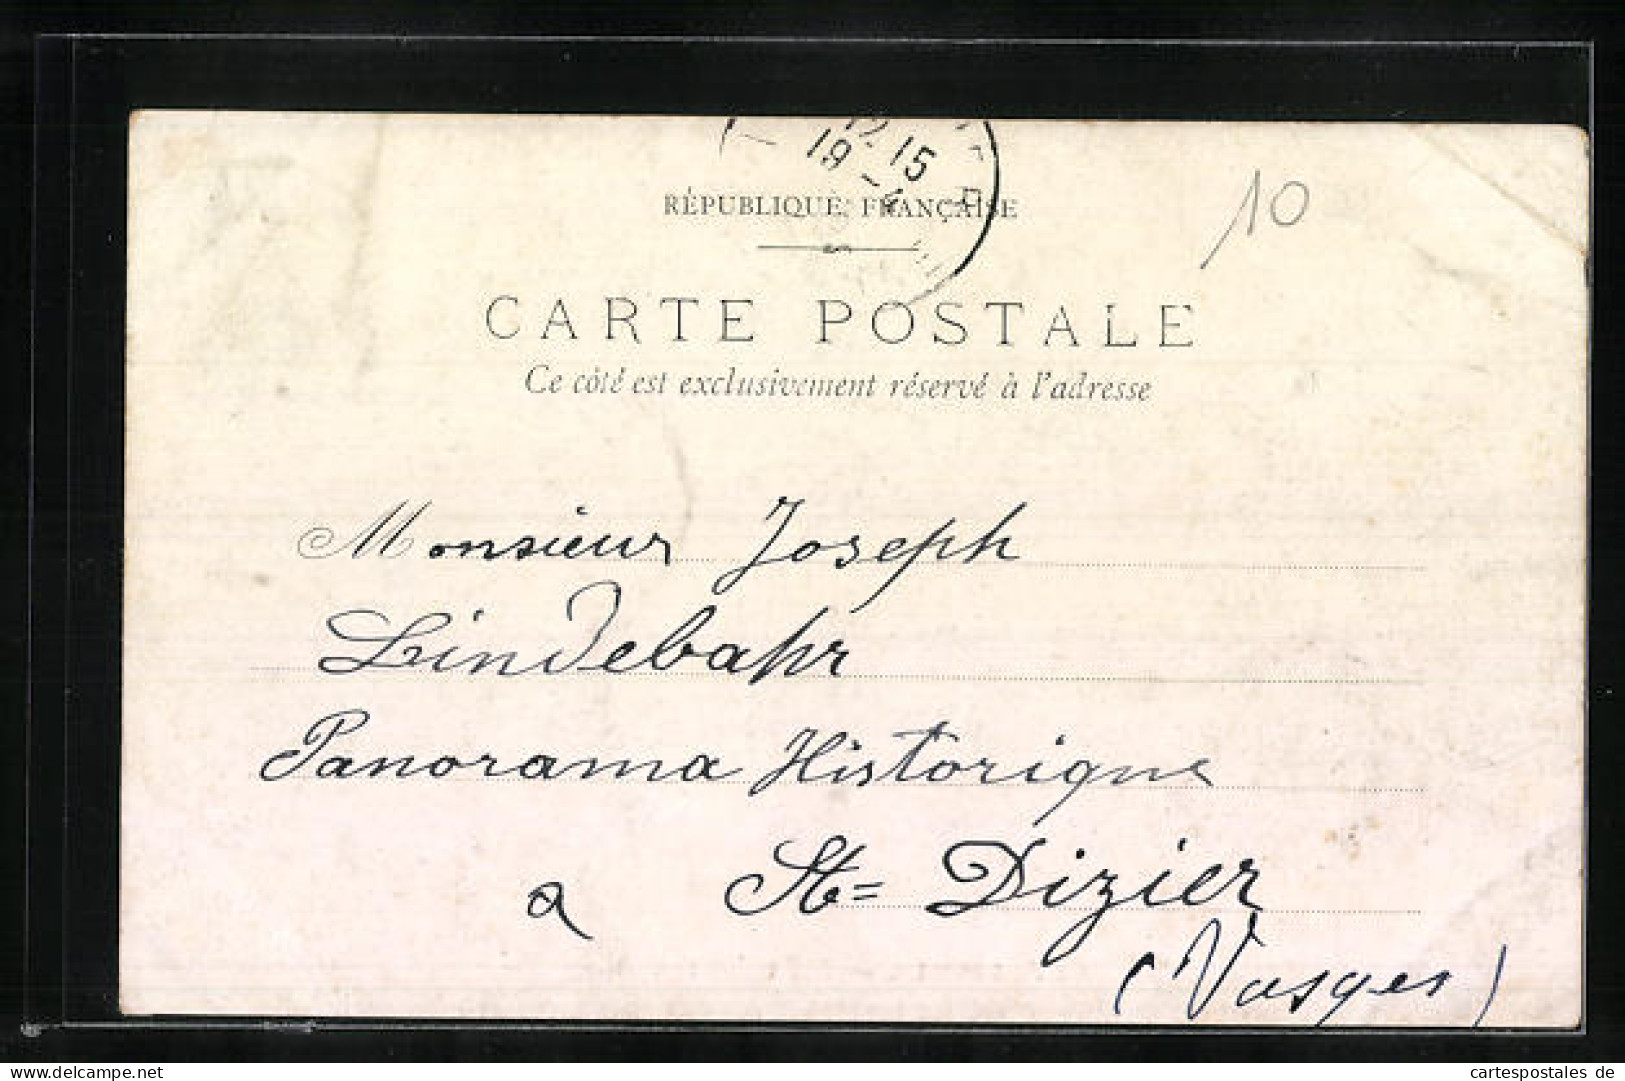 19-15
10
RÉPUBLIQUE FRANÇAISE
CARTE POSTALE
Ce côté est exclusivement réservé à l'adresse
Monsieur Joseph
Lindebahr
Panorama Historique
a St= Dizier
(Vosges)
cartespostales de